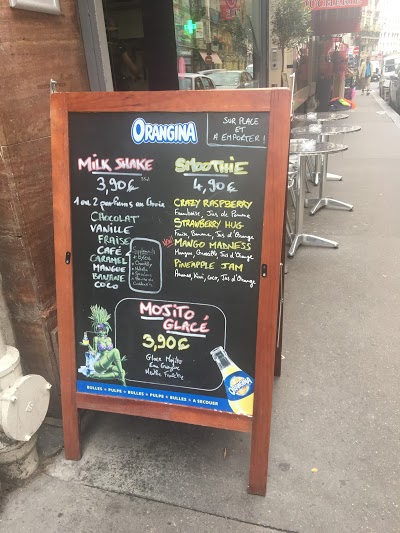 ORANGINA
SUR PLACE
ET
A EMPORTER !
MILK SHAKE
3,90€
1 ou 2 parfums au choix
CHOCOLAT
VANILLE
FRAISE
CAFÉ
CARAMEL
MANGUE
BANANE
COCO
SMOOTHIE
4,90€
CRAZY RASPBERRY
Framboise, Jus de Pomme
STRAWBERRY HUG
Fraise, Banane, Jus d'Orange
MANGO MADNESS
Mangue, Jus d'Orange
PINEAPPLE JAM
Ananas, Kiwi, Coco, Jus d'Orange
MOJITO
GLACÉ
3,90€
Glace Mojito
Eau Gazeuse
Menthe Fraîche
BULLES + PULPE + BULLES + PULPE + BULLES + A SECOUER